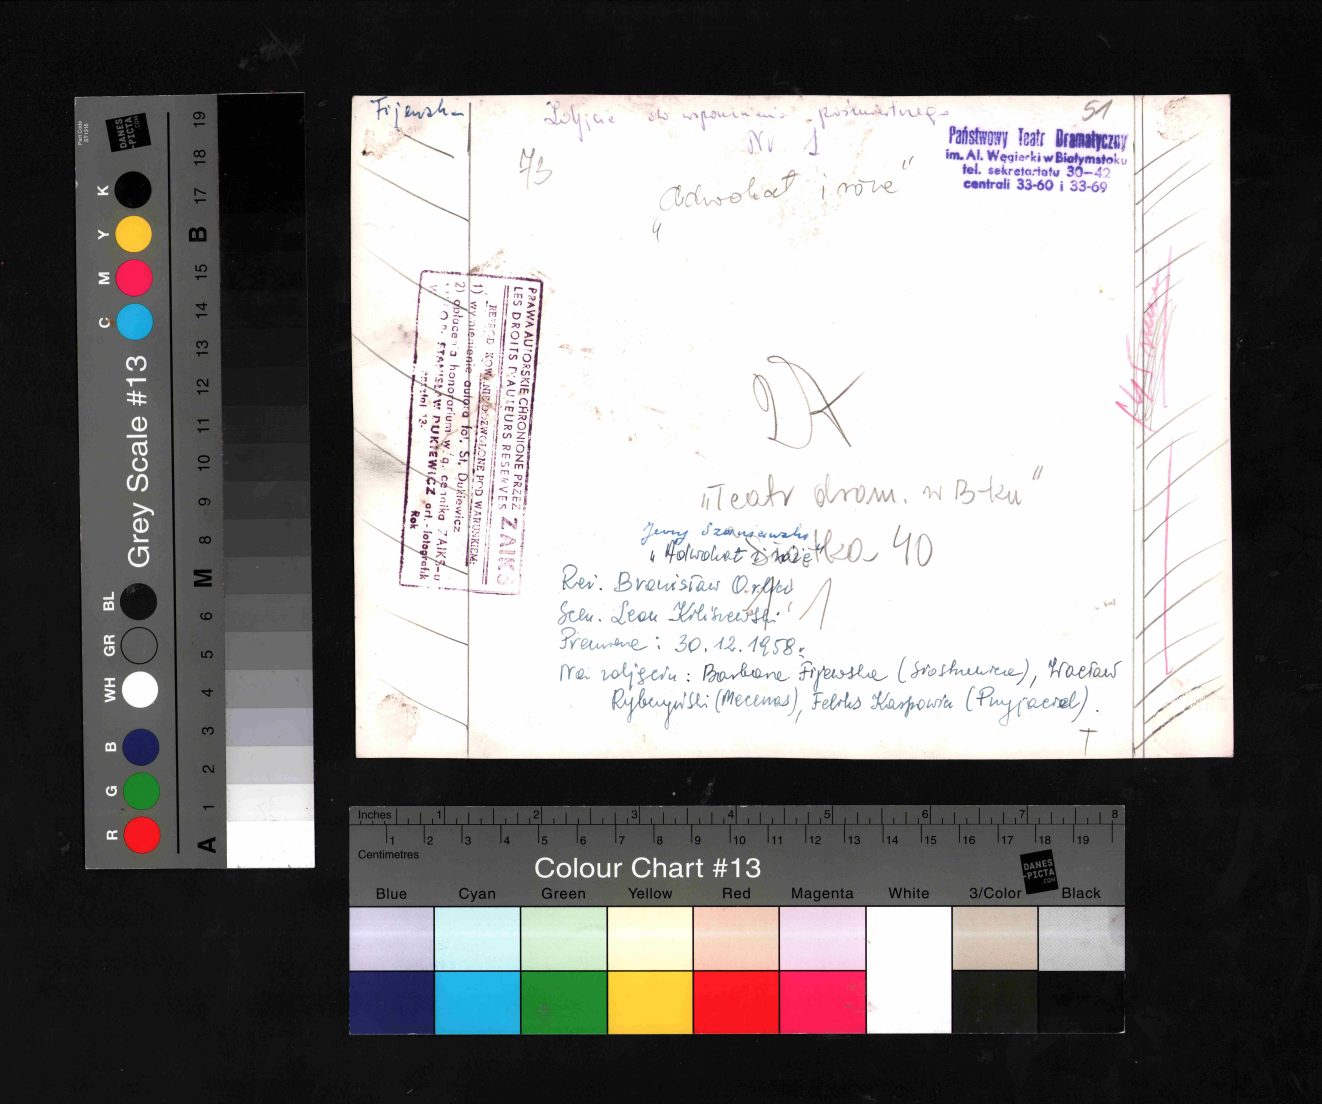 Fijewska
Zdjęcie do wspomnienia pośmiertnego
Nr. 1
51
73
Państwowy Teatr Dramatyczny
im. Al. Węgierki w Białymstoku
tel. sekretariatu 30-42
centrali 33-60 i 33-69
„Adwokat i róże”
PRAWA AUTORSKIE CHRONIONE PRZEZ
LES DROITS D'AUTEURS RESERVES
ZAIKS
REPRODUKOWANIE DOZWOLONE POD WARUNKIEM:
1) wymienienie autora fot. St. Dukiewicz
2) opłacenia honorarium w/g. cennika ZAIKS-u
STANISŁAW DUKIEWICZ art.-fotografik
Rok
„Teatr dram. w B-ku”
Jerzy Szaniawski
„Adwokat i róże”
40
Reż. Bronisław Orlicz
Scen. Leon
Premiera: 30.12.1958.
Na zdjęciu: Barbara Fijewska (Siostrzenica), Wacław
Rybczyński (Mecenas), Feliks Karpowicz (Przyjaciel).
T
Part Code
ST1316
DANES
-PICTA
.COM
Grey Scale #13
R G B WH GR BL C M Y K
A 1 2 3 4 5 6 M 8 9 10 11 12 13 14 15 B 17 18 19
Inches 1 2 3 4 5 6 7 8
1 2 3 4 5 6 7 8 9 10 11 12 13 14 15 16 17 18 19
Centimetres
Colour Chart #13
DANES
-PICTA
.COM
Blue Cyan Green Yellow Red Magenta White 3/Color Black